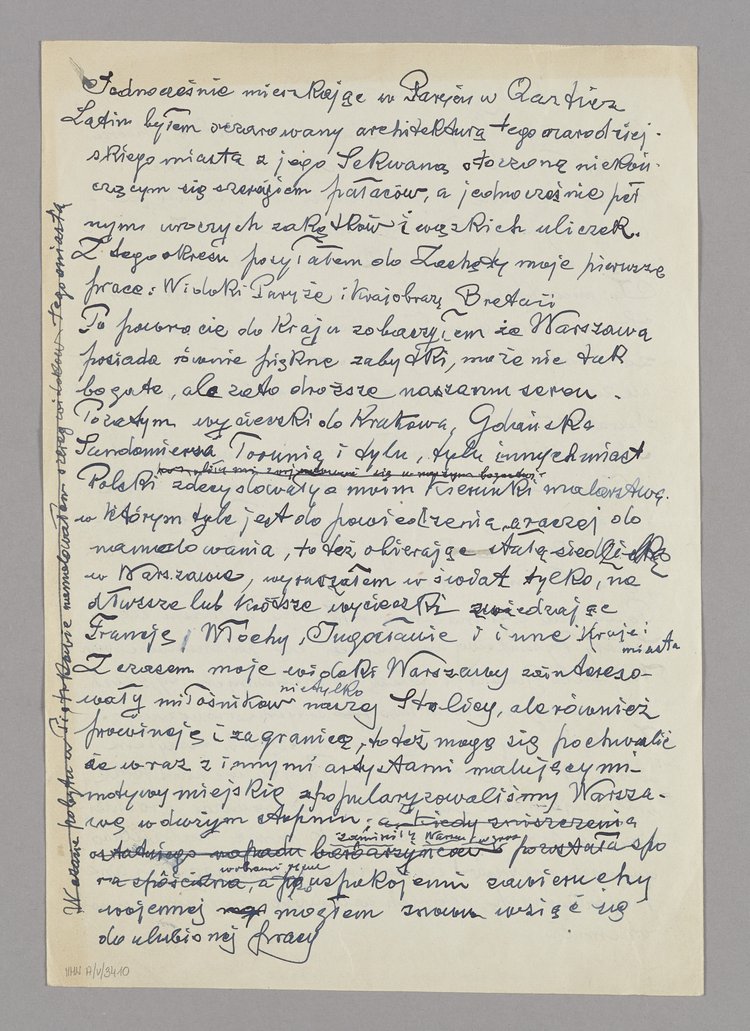 Jednocześnie mieszkając w Paryżu w Quartier
Latin byłem oczarowany architekturą tego czarodziej-
skiego miasta z jego Sekwaną otoczoną niekoń-
czącym się szeregiem pałaców, a jednocześnie peł
nym uroczych zakątków i wąskich uliczek.
Z tego okresu posyłałem do Zachęty moje pierwsze
prace: Widoki Paryża i Krajobrazy Bretanii
Po powrocie do Kraju zobaczyłem że Warszawa
posiada równie piękne zabytki, może nie tak
bogate, ale za to droższe naszemu sercu.
Pozatym wycieczki do Krakowa, Gdańska
Sandomierza Torunia i tylu, tylu innych miast
Polski zdecydowały o moim kierunku malarstwa.
w którym tyle jest do powiedzenia, a raczej do
namalowania, toteż obierając stałą siedzibę
w Warszawie, wyruszałem w świat tylko, na
dłuższe lub krótsze wycieczki zwiedzając
Francję, Włochy, Jugosławię i inne Kraje i
miasta
Z czasem moje widoki Warszawy zaintereso-
nietylko
wały miłośników naszej Stolicy, ale również
prowincję i zagranicę, toteż mogę się pochwalić
że wraz z innymi artystami malującymi
motywy miejskie spopularyzowaliśmy Warsza-
wę w dużym stopniu. a kiedy zniszczenia
ostatniego napadu barbarzyńców powstała spo
a po uspokojeniu zawieruchy
wojennej mogłem znowu wziąć się
do ulubionej pracy
W czasie pobytu w Piotrkowie namalowałem szereg widoków tego miasta
MHW A/V/3410